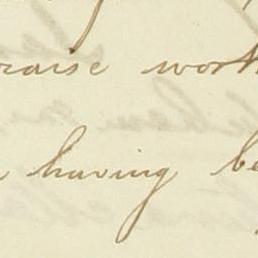 raise wort
having be